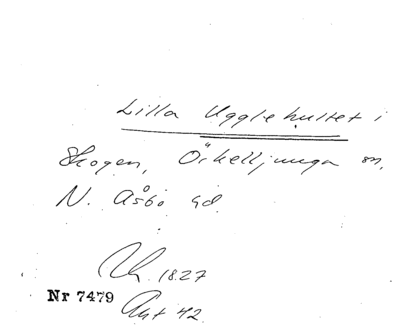 Lilla Ugglehultet i
Skogen, Örkelljunga sn,
N. Åsbo hd.
1827
Nr 7479
42